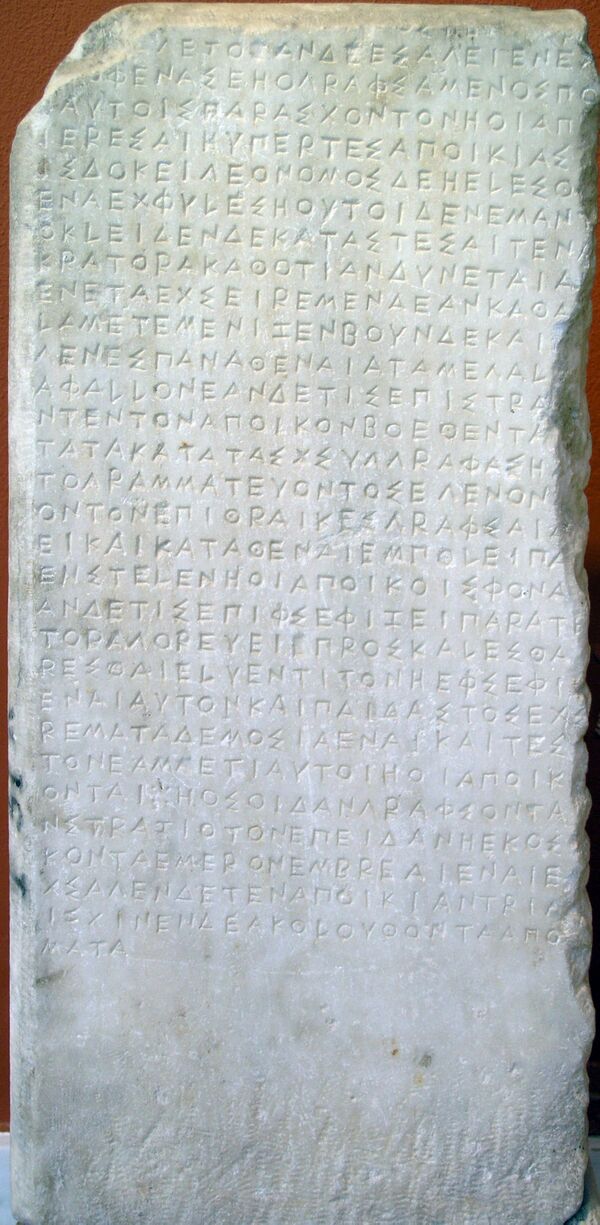 ΕΤΟΕΑΝΔΕΕΣΑΓΕΙΕΝΕΧ
ΟΦΕΝΑΣΕΗΟΓΡΑΦΣΑΜΕΝΟΣΠΟ
ΑΥΤΟΙΣΠΑΡΑΣΧΟΝΤΟΝΗΟΙΑΠ
ΙΕΡΕΣΑΙΗΥΠΕΡΤΕΣΑΠΟΙΚΙΑΣ
ΙΣΔΟΚΕΙΓΕΟΝΟΜΟΣΔΕΗΕΛΕΣΘ
ΕΝΑΕΧΦΥΛΕΣΗΟΥΤΟΙΔΕΝΕΜΑΝ
ΟΚΛΕΙΔΕΝΔΕΚΑΤΑΣΤΕΣΑΙΤΕΝΑ
ΚΡΑΤΟΡΑΚΑΘΟΤΙΑΝΔΥΝΕΤΑΙΑ
ΕΝΕΤΑΕΧΣΕΙΡΕΜΕΝΑΕΑΝΚΑΘΑ
ΛΑΜΕΤΕΜΕΝΙΖΕΝΒΟΥΝΔΕΚΑΙ
ΓΕΝΕΣΠΑΝΑΘΕΝΑΙΑΤΑΜΕΓΑΛ
ΑΦΑΛΛΟΝΕΑΝΔΕΤΙΣΕΠΙΣΤΡΑ
ΝΤΕΝΤΟΝΑΠΟΙΚΟΝΒΟΕΘΕΝΤΑ
ΤΑΤΑΚΑΤΑΤΑΣΧΣΥΓΓΡΑΦΑΣΗ
ΤΟΓΡΑΜΜΑΤΕΥΟΝΤΟΣΕΓΕΝΟΝ
ΟΝΤΟΝΕΠΙΘΡΑΙΚΕΣΓΡΑΦΣΑΙΔ
ΕΙΚΑΙΚΑΤΑΘΕΝΑΙΕΜΠΟΛΕΙΠΑ
ΕΝΣΤΕΛΕΝΗΟΙΑΠΟΙΚΟΙΣΦΟΝΑ
ΑΝΔΕΤΙΣΕΠΙΦΣΕΦΙΖΕΙΠΑΡΑΤΕ
ΤΟΡΑΓΟΡΕΥΕΙΕΠΡΟΣΚΑΛΕΣΘΑ
ΡΕΣΘΑΙΕΛΥΕΝΤΙΤΟΝΗΕΦΣΕΦΙ
ΕΝΑΙΑΥΤΟΝΚΑΙΠΑΙΔΑΣΤΟΣΕΧ
ΡΕΜΑΤΑΔΕΜΟΣΙΑΕΝΑΙΚΑΙΤΕΣ
ΤΟΝΕΑΜΜΕΤΙΑΥΤΟΙΗΟΙΑΠΟΙΚ
ΟΝΤΑΙΗΟΣΟΙΔΑΝΓΡΑΦΣΟΝΤΑ
ΝΣΤΡΑΤΙΟΤΟΝΕΠΕΙΔΑΝΗΕΚΟΣ
ΚΟΝΤΑΕΜΕΡΟΝΕΜΒΡΕΑΙΕΝΑΙΕ
ΧΣΑΓΕΝΔΕΤΕΝΑΠΟΙΚΙΑΝΤΡΙΑ
ΙΣΧΙΝΕΝΔΕΑΚΟΛΟΥΘΟΝΤΑΑΠΟ
ΜΑΤΑ